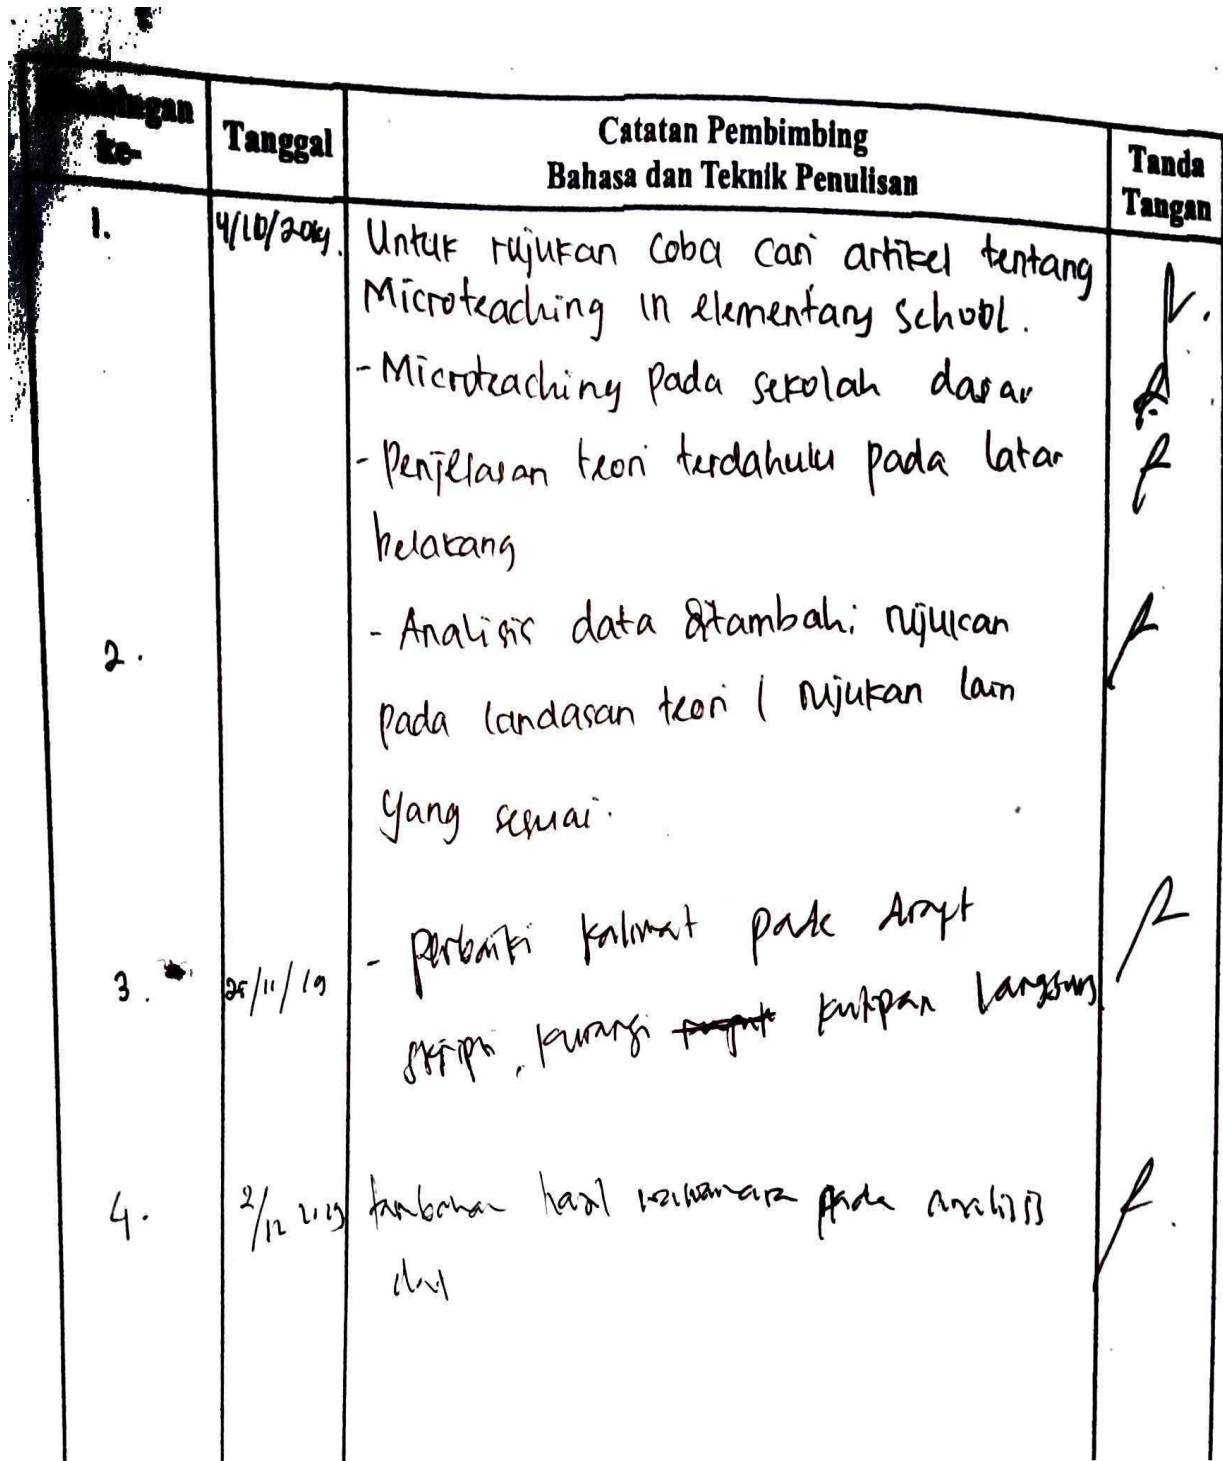 ke-
Tanggal
Catatan Pembimbing
Bahasa dan Teknik Penulisan
Tanda
Tangan
1.
4/10/2019.
Untuk rujukan coba cari artikel tentang
Microteaching in elementary school.
- Microteaching pada sekolah dasar
- Penjelasan teori terdahulu pada latar
belakang
2.
- Analisis data ditambahi rujukan
pada landasan teori / rujukan lain
yang sesuai.
3.
25/11/19
- perbaiki kalimat pada
skripsi, kurangi kutipan langsung
4.
2/12 2019
hasil wawancara pada analisis